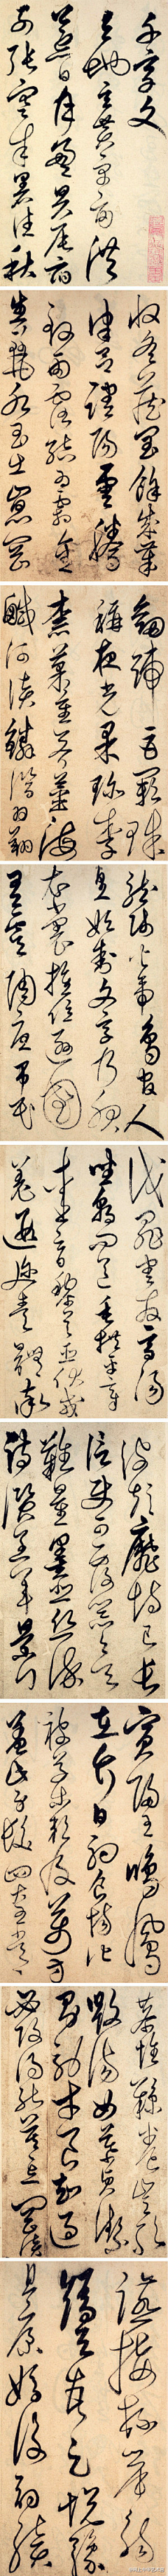 千字文
天地玄黃宇宙洪
荒日月盈昃辰宿
列張寒來暑往秋
收冬藏閏餘成歲
律呂調陽雲騰
致雨露結為霜金
生麗水玉出崑岡
劍號巨闕珠
稱夜光果珍李
柰菜重芥薑海
鹹河淡鱗潛羽翔
龍師火帝鳥官人
皇始制文字乃服
衣裳推位遜國
有虞陶唐弔民
伐罪周發商湯
坐朝問道垂拱平章
愛育黎首臣伏戎
羌遐邇壹體率
彼短靡恃己長
信使可覆器欲
難量墨悲絲染
詩讚羔羊景行
賓歸王鳴鳳
在竹白駒食場化
被草木賴及萬方
蓋此身髮四大五常
恭惟鞠養豈敢
毀傷女慕貞潔
男效才良知過
必改得能莫忘罔談
讌接杯舉觴
矯手頓足悅豫
且康嫡後嗣續